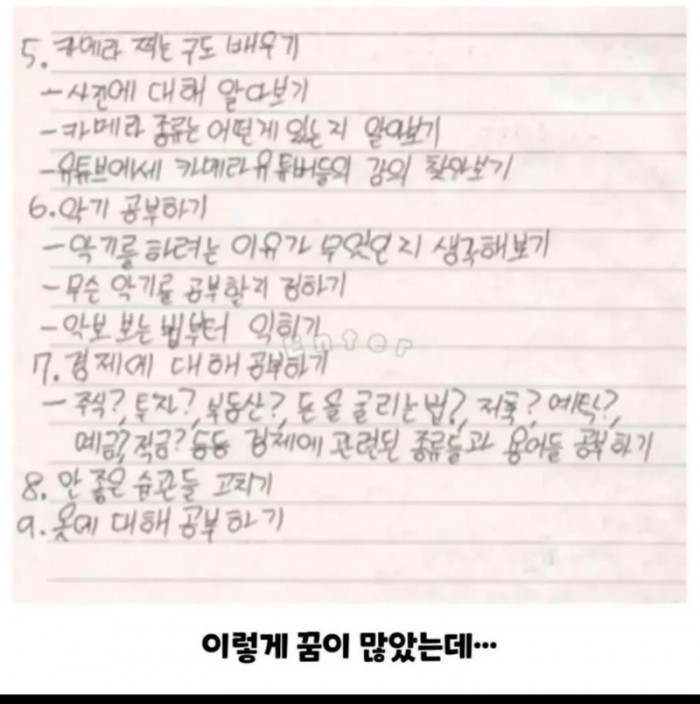 5. 카메라 찍는 구도 배우기
- 사진에 대해 알아보기
- 카메라 종류는 어떤게 있는지 알아보기
- 유튜브에세 카메라 유튜버들의 강의 찾아보기
6. 악기 공부하기
- 악기를 하려는 이유가 무엇인지 생각해보기
- 무슨 악기를 공부할지 정하기
- 악보 보는 법부터 익히기
enter
7. 경제에 대해 공부하기
- 주식?, 투자?, 부동산?, 돈을 굴리는 법?, 저축? 예탁?,
예금? 적금? 등등 경제에 관련된 종류들과 용어들 공부하기
8. 안 좋은 습관들 고치기
9. 옷에 대해 공부하기
이렇게 꿈이 많았는데…